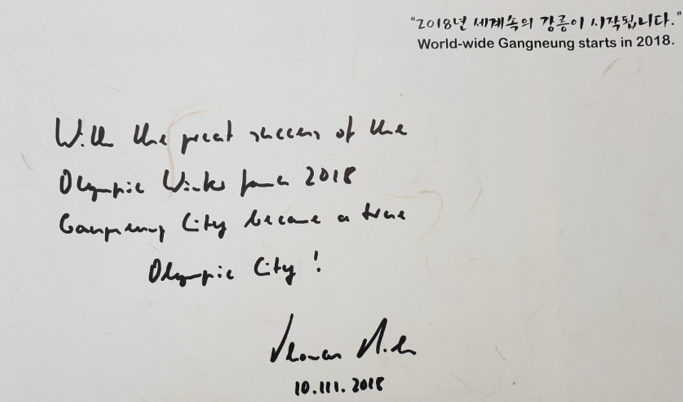 "2018년 세계속의 강릉이 시작됩니다."
World-wide Gangneung starts in 2018.
With the great success of the
Olympic Winter Games 2018
Gangneung City became a true
Olympic City!
Thomas Bach
10.III.2018